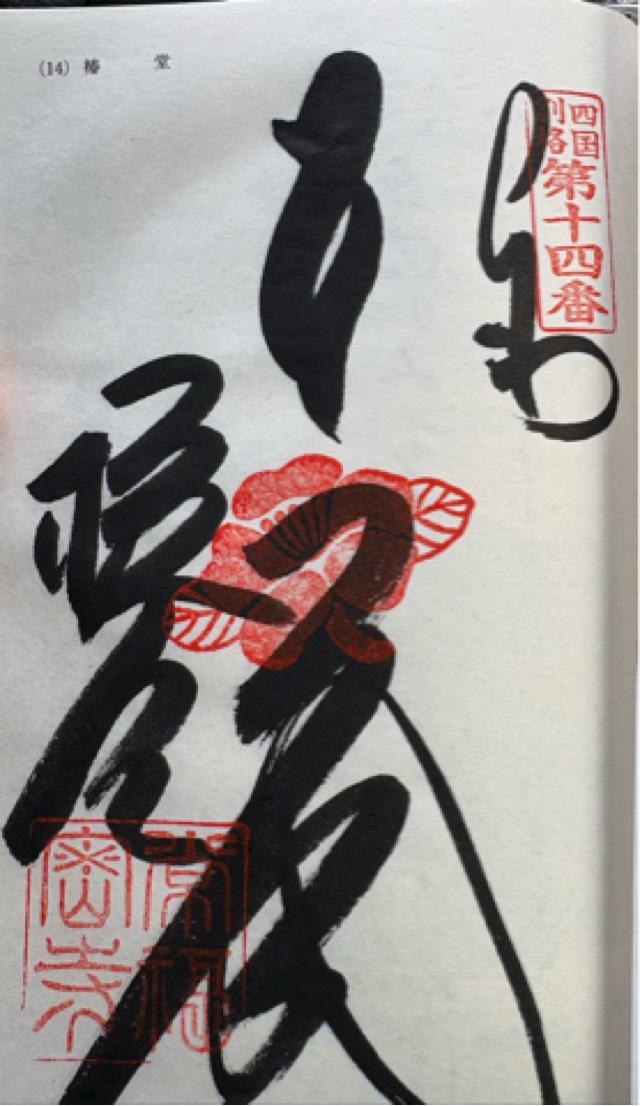 (14) 椿 堂
四国
別格
第十四番
奉拝
椿堂
常福
密寺